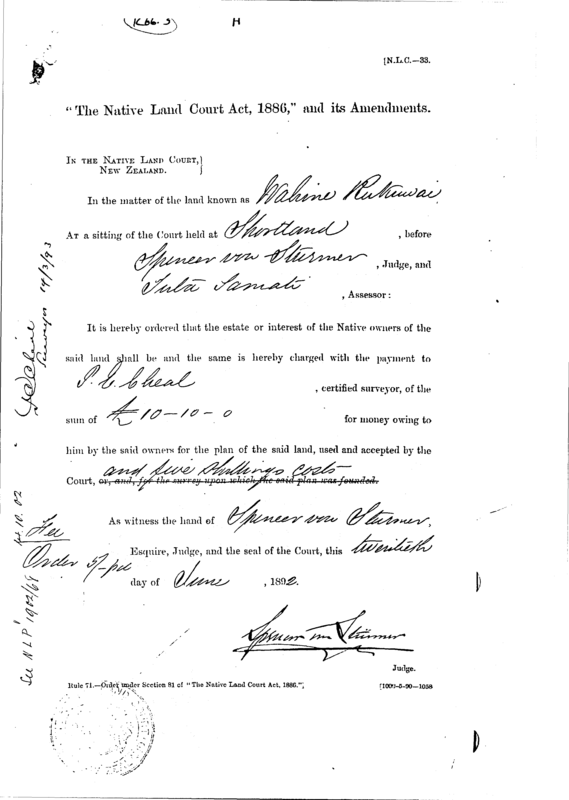 K66. 5 H
[N.L.C.—33.
"The Native Land Court Act, 1886," and its Amendments.
In the Native Land Court,
New Zealand.
In the matter of the land known as Wahine Rukuwai
At a sitting of the Court held at Shortland , before
Spencer von Sturmer , Judge, and
, Assessor:
It is hereby ordered that the estate or interest of the Native owners of the
said land shall be and the same is hereby charged with the payment to
P. E. Cheal , certified surveyor, of the
sum of £10-10-0 for money owing to
him by the said owners for the plan of the said land, used and accepted by the
and five shillings costs
Court, or, and, for the survey upon which the said plan was founded.
As witness the hand of Spencer von Sturmer,
Esquire, Judge, and the seal of the Court, this twentieth
day of June , 1892.
Spencer von Sturmer
Judge.
Rule 71.—Order under Section 81 of "The Native Land Court Act, 1886."]
[1000-5-90—1058
Surveyor 14/3/93
Fee
Order 5/- pd
See NLP 1902/69